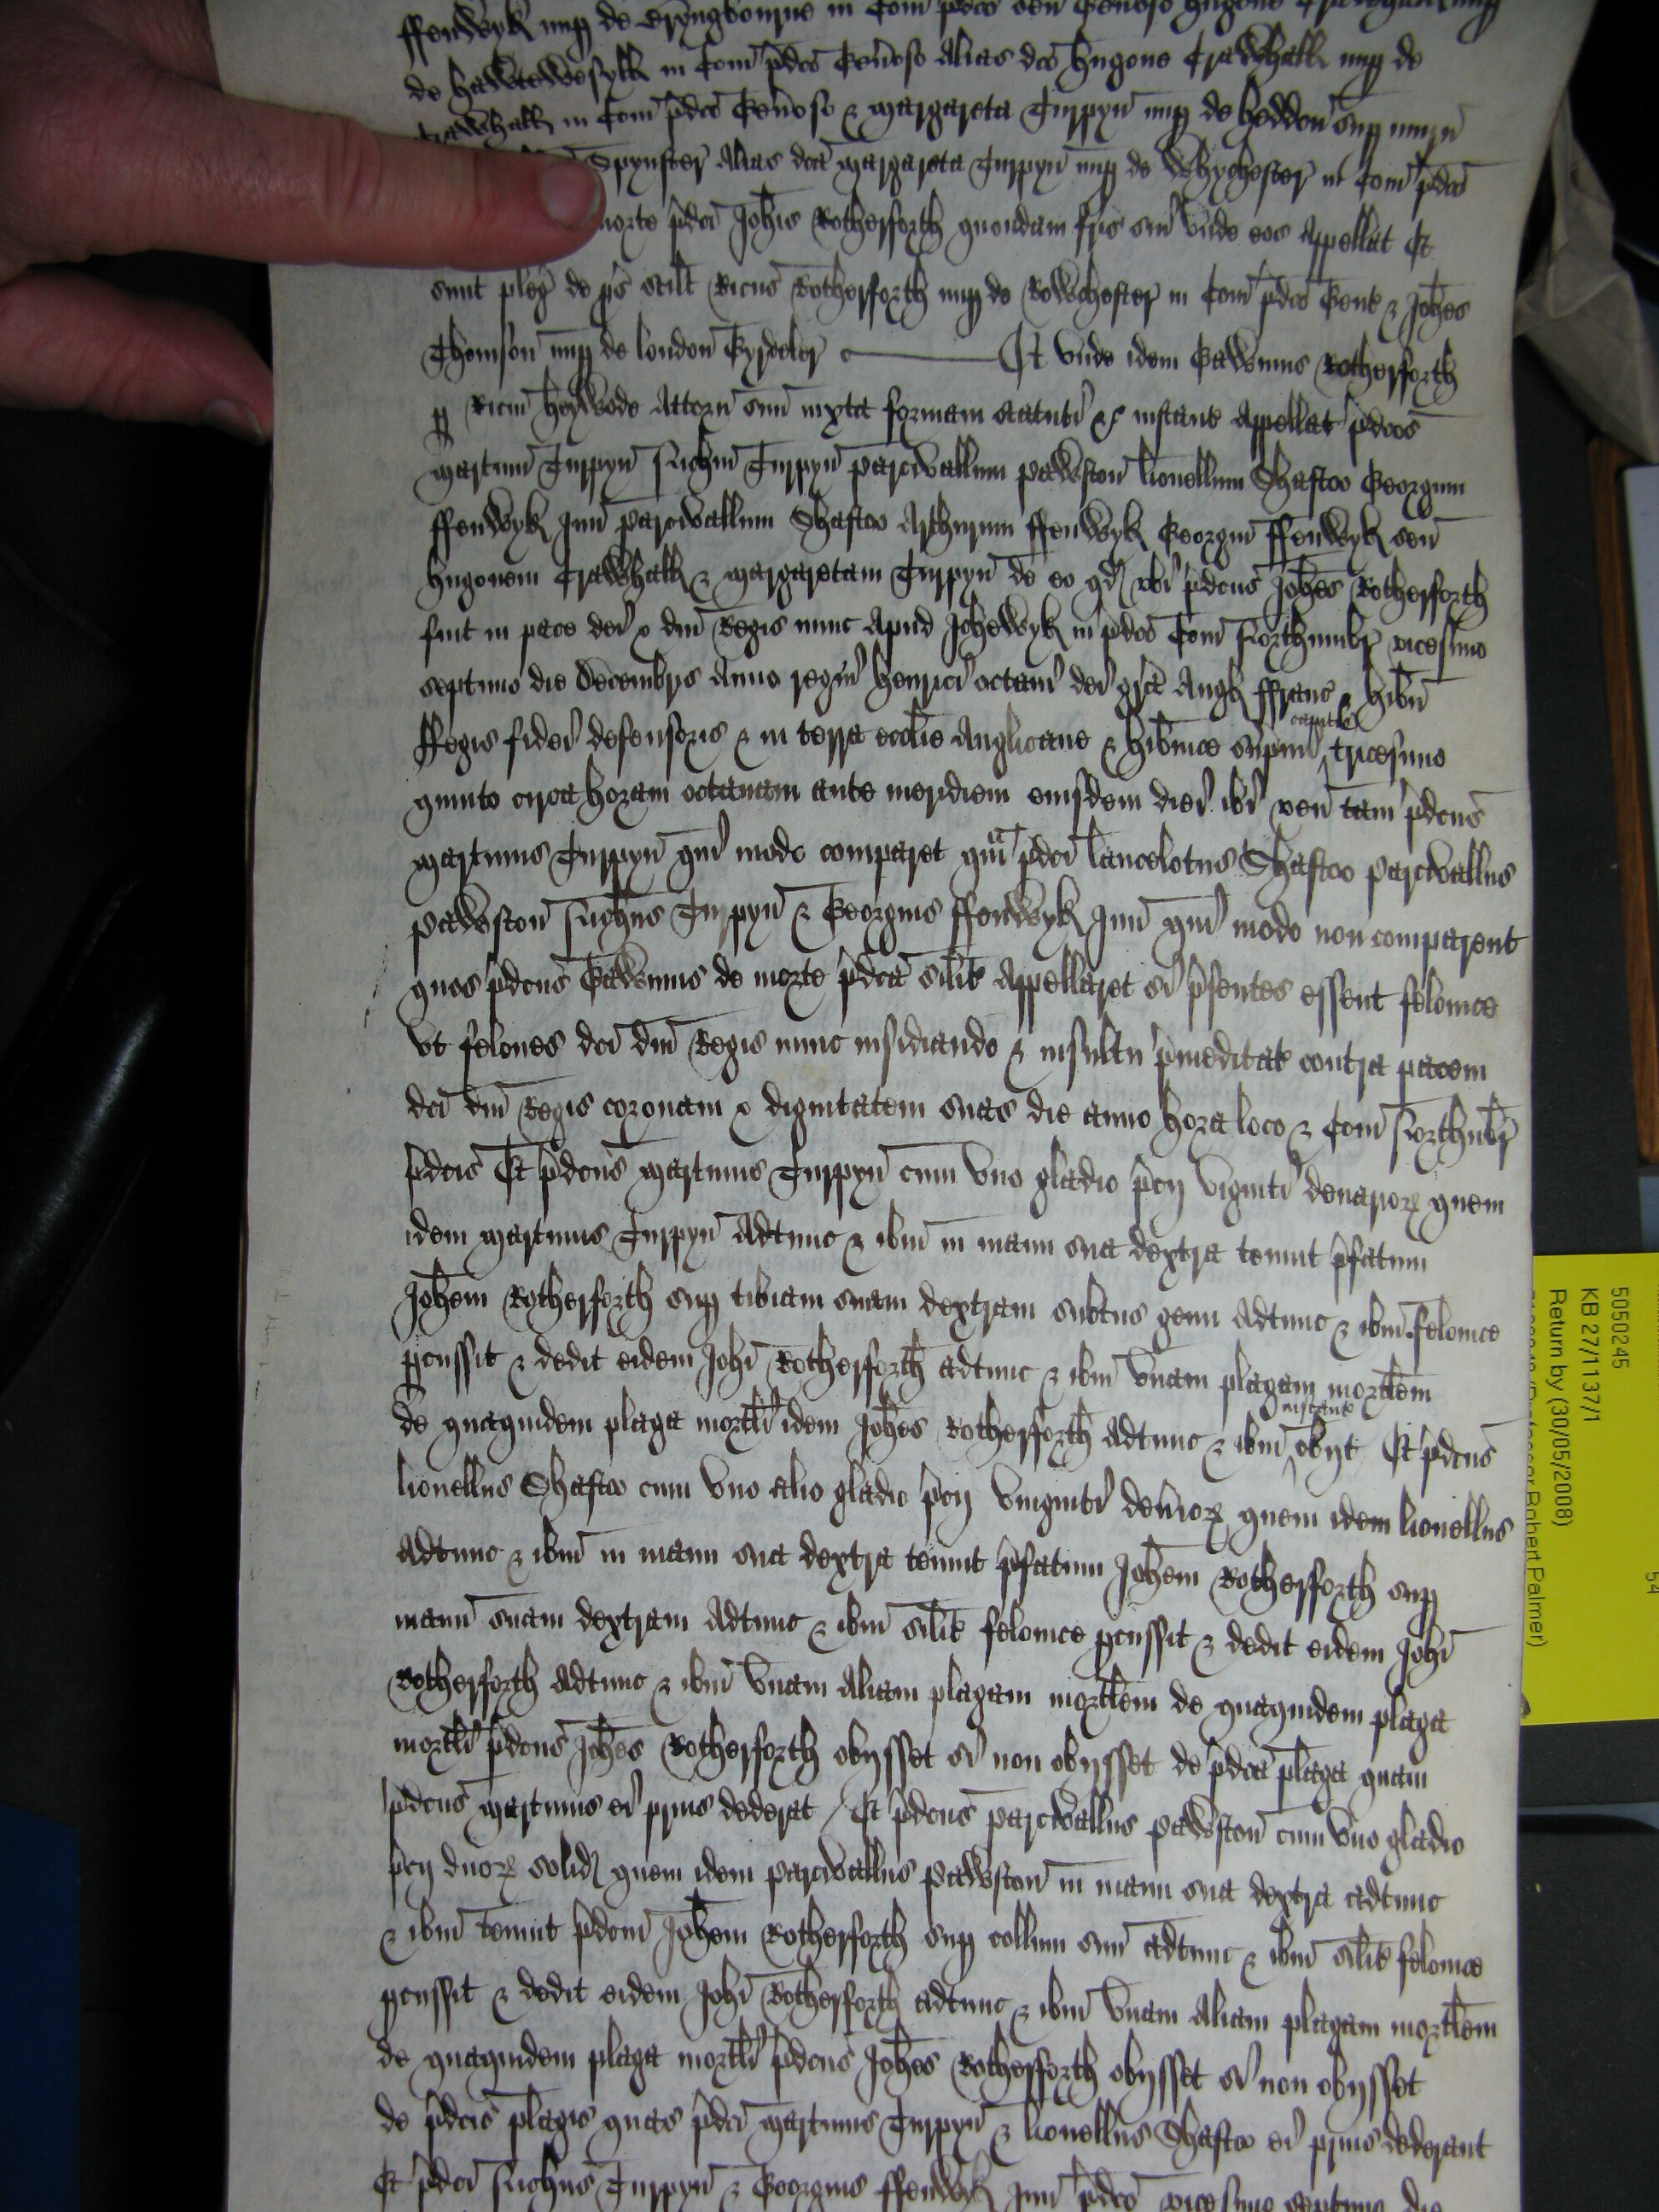 ffenwyk nup de Eryngbourne in Com pdco sen Geñoso Hugone Trawhall nup
de Hawtewesyll in Com pdco Geñoso Alias dco Hugone Crawhall nup de
Crawhall in Com pdco Geñoso & Margareta Turppyn nup de Heddon sup murū
Spynster Alias dca Margareta Turppyn nup de Whychester in Com pdco
morte pdci Johis Rotherforth quondam fris sui unde eos Appellat Et
sunt pleg de ps scilt Ricus Rotherforth nup de Rowchester in Com pdco Gent & Johes
Thomson nup de london Gyrdeler Et unde idem Gawenus Rotherforth
p Ricm Heywode Attorn suu iuxta formam statuti &c instant Appellat pdcos
Martinū Turppyn Nichm Turppyn Parcivallum Pawston lionellum Shaftoo Georgium
ffenwyk Iuñ Parcivallum Shaftoo Arthurum ffenwyk Georgiū ffenwyk señ
Hugonem Crawhall & Margaretam Turppyn de eo qd ubi pdcus Johes Rotherforth
fuit in pace dei & dni Regis nunc Apud Ichewyk in pdco Com Northumbr vicesimo
septimo die Decembris Anno regni Henrici octavi dei gra Angl ffranc & Hibñ
Regis fidei defensoris & in terra ecclie Anglicane & Hibnice supmi capitis tricesimo
quinto circa horam octavam ante meridiem eiusdem diei ibi ven tam pdcus
Martinus Turppyn qui modo comparet quā pdci lancelotus Shaftoo Parcivallus
Pawston Nichus Turppyn & Georgius ffenwyk Iuñ qui modo non comparent
quos pdcus Gawenus de morte pdca silit Appellaret si psentes essent felonice
ut felones dci dni Regis nunc insidiando & insultu pmeditat contra pacem
dci dni Regis coronam & dignitatem suas die anno hora loco & Com Northubr
pdcis Et pdcus Martinus Turppyn cum uno gladio pcij viginti denarior quem
idem Martinus Turppyn Adtunc & ibm in manu sua dextra tenuit pfatum
Johem Rotherforth sup tibiam suam dextram subtus genu Adtunc & ibm felonice
pcussit & dedit eidem Johi Rotherforth adtunc & ibm unam plagam mortlem
de quaquidem plaga mortli idem Johes Rotherforth Adtunc & ibm instant obijt Et pdcus
lionellus Shaftoo cum uno alio gladio pcij viginti denior quem idem lionellus
Adtunc & ibm in manu sua dextra tenuit pfatum Johem Rotherforth sup
manū suam dextram Adtunc & ibm silit felonice pcussit & dedit eidem Johi
Rotherforth Adtunc & ibm unam Aliam plagam mortlem de quaquidem plaga
mortli pdcus Johes Rotherforth obijsset si non obijsset de pdca plaga quam
pdcus Martinus ei prius dederat / Et pdcus Parcivallus Pawston cum uno gladio
pcij duor solid quem idem Parcivallus Pawston in manu sua dextra adtunc
& ibm tenuit pdcm Johem Rotherforth sup collum suū adtunc & ibm silit felonice
pcussit & dedit eidem Johi Rotherforth adtunc & ibm unam Aliam plagam mortlem
de quaquidem plaga mortli pdcus Johes Rotherforth obijsset si non obijsset
de pdcis plagis quas pdci Martinus Turppyn & lionellus Shaftoo ei prius dederant
Et pdci Nichus Turppyn & Georgius ffenwyk Iuñ pdco vicesimo septimo die
5050245
KB 27/1137/1
Return by (30/05/2008)
Robert Palmer)
54